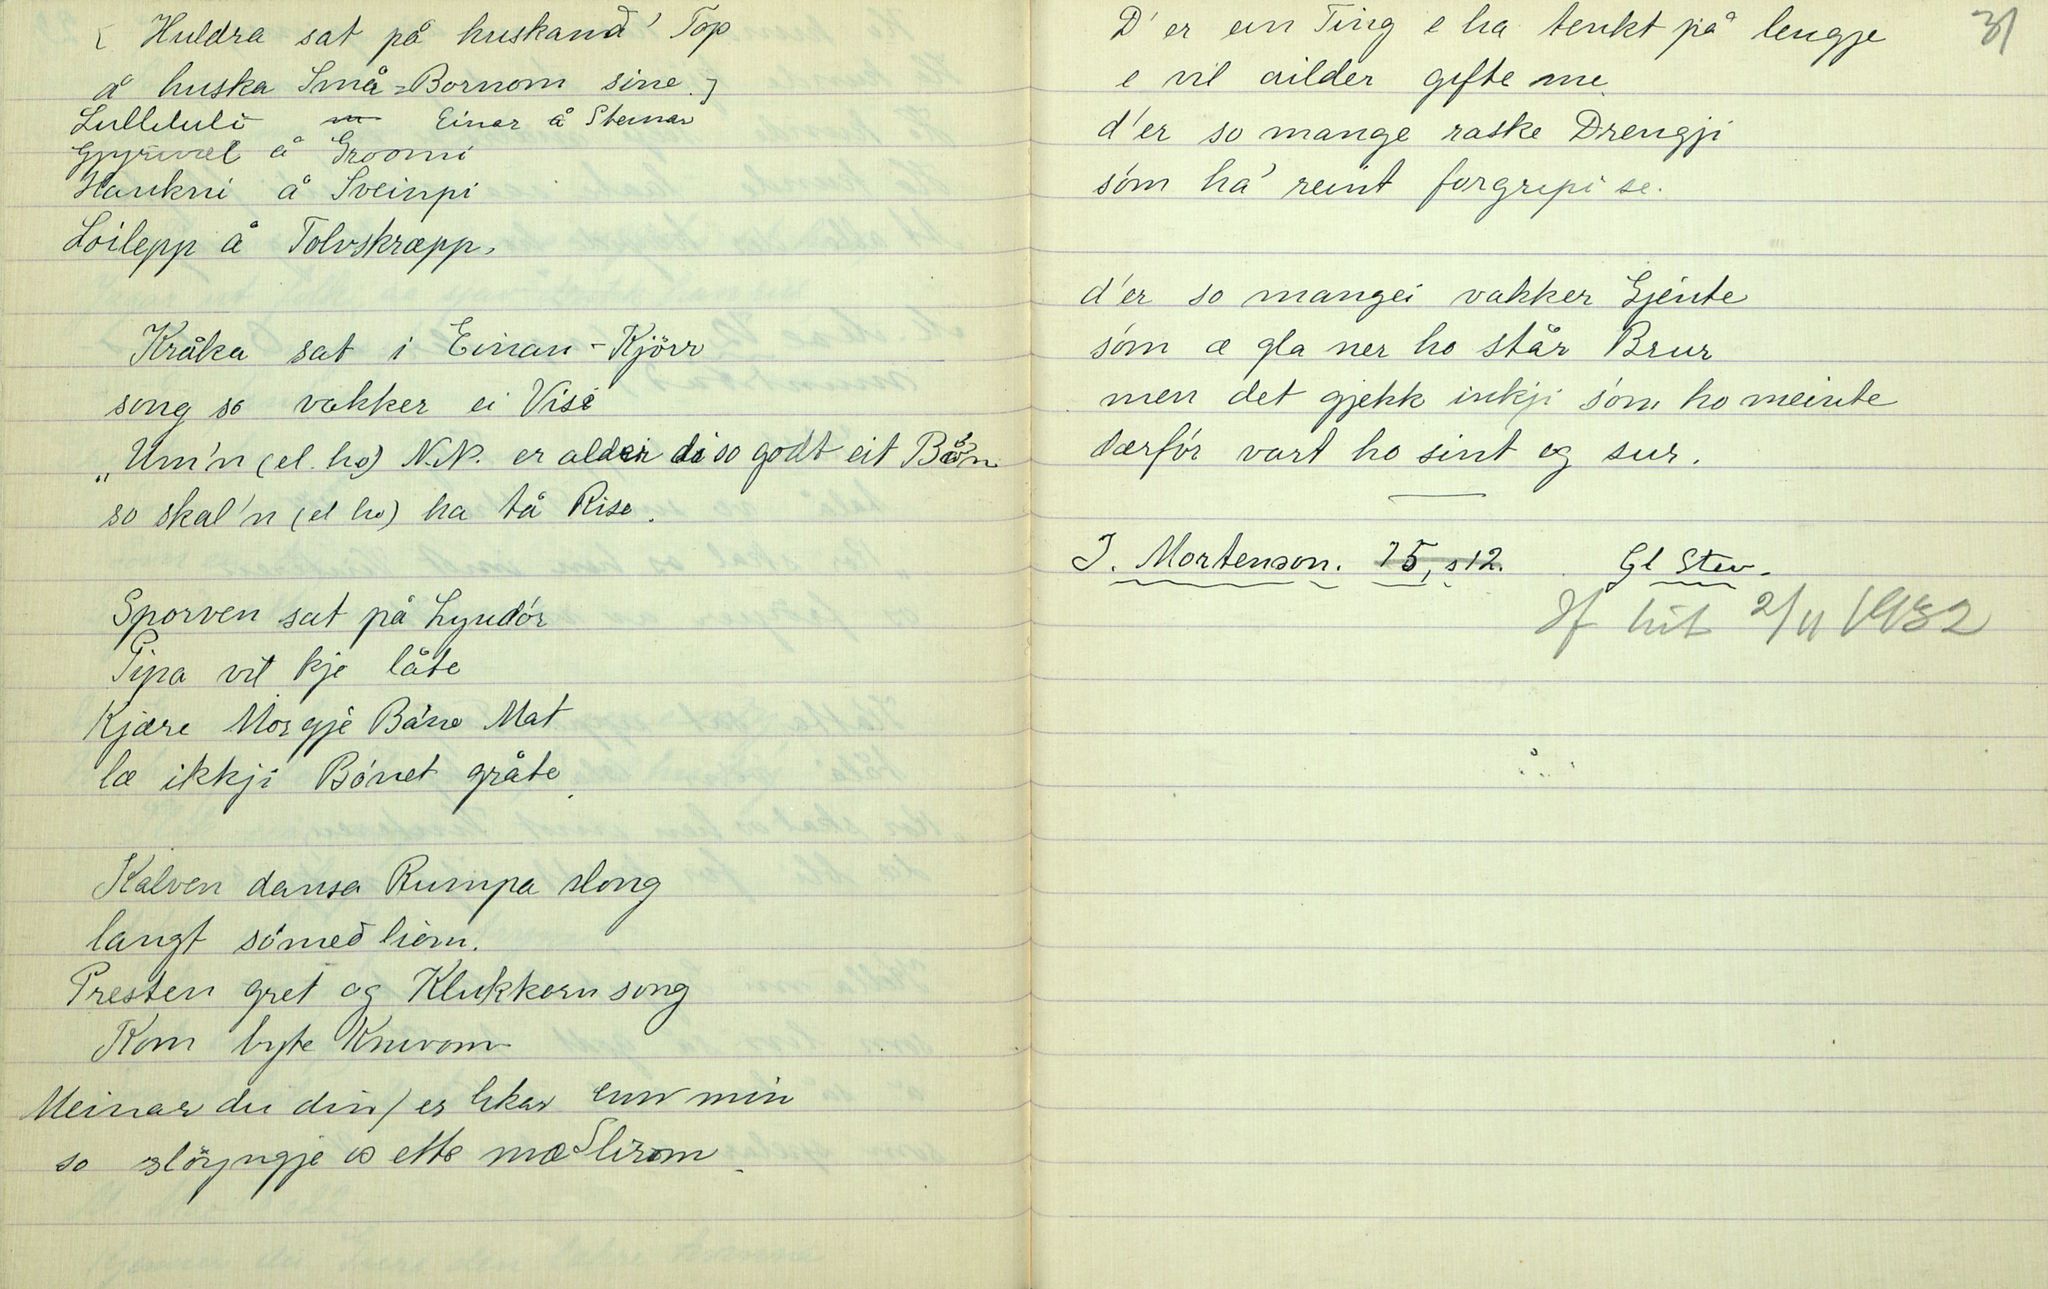 [ Huldra sat på huskand' Top
å huska Små=Bornom sine.]
Lulleluli Einar å Steinar
Gyrivel å Groomi
Haukni å Sveinpi
Loilepp å Tolvskræpp,
Kråka sat i Einan-Kjörr
song so vakker ei Visé
„Um'n (el. ho) N.N. er alder di so godt eit Bón
so skal'n (el ho) ha tå Rise.
Sporven sat på Lyndór
Pipa vil kje låte
Kjære Mor gjé Báne Mat
læ ikkji Bónet gråte.
Kalven dansa Rumpa slong
langt sómeð liom.
Presten gret og Klukkern song
Kom byte Knivom
Meinar du din er likar enn min
so slöngje os ette mæ Slirom.
31
D'er ein Ting e ha tenkt på lengje
e vil ailder gifte me.
d'er so mange raske Drengji
sóm ha' reint forgripi se.
d'er so mangei vakker Gjente
sóm æ gla ner ho står Brur
men det gjekk inkji sóm ho meinte
dærfór vart ho sint og sur.
J. Mortenson. 75, s 12. Gl Stev.
Hf hit 2/11 1932